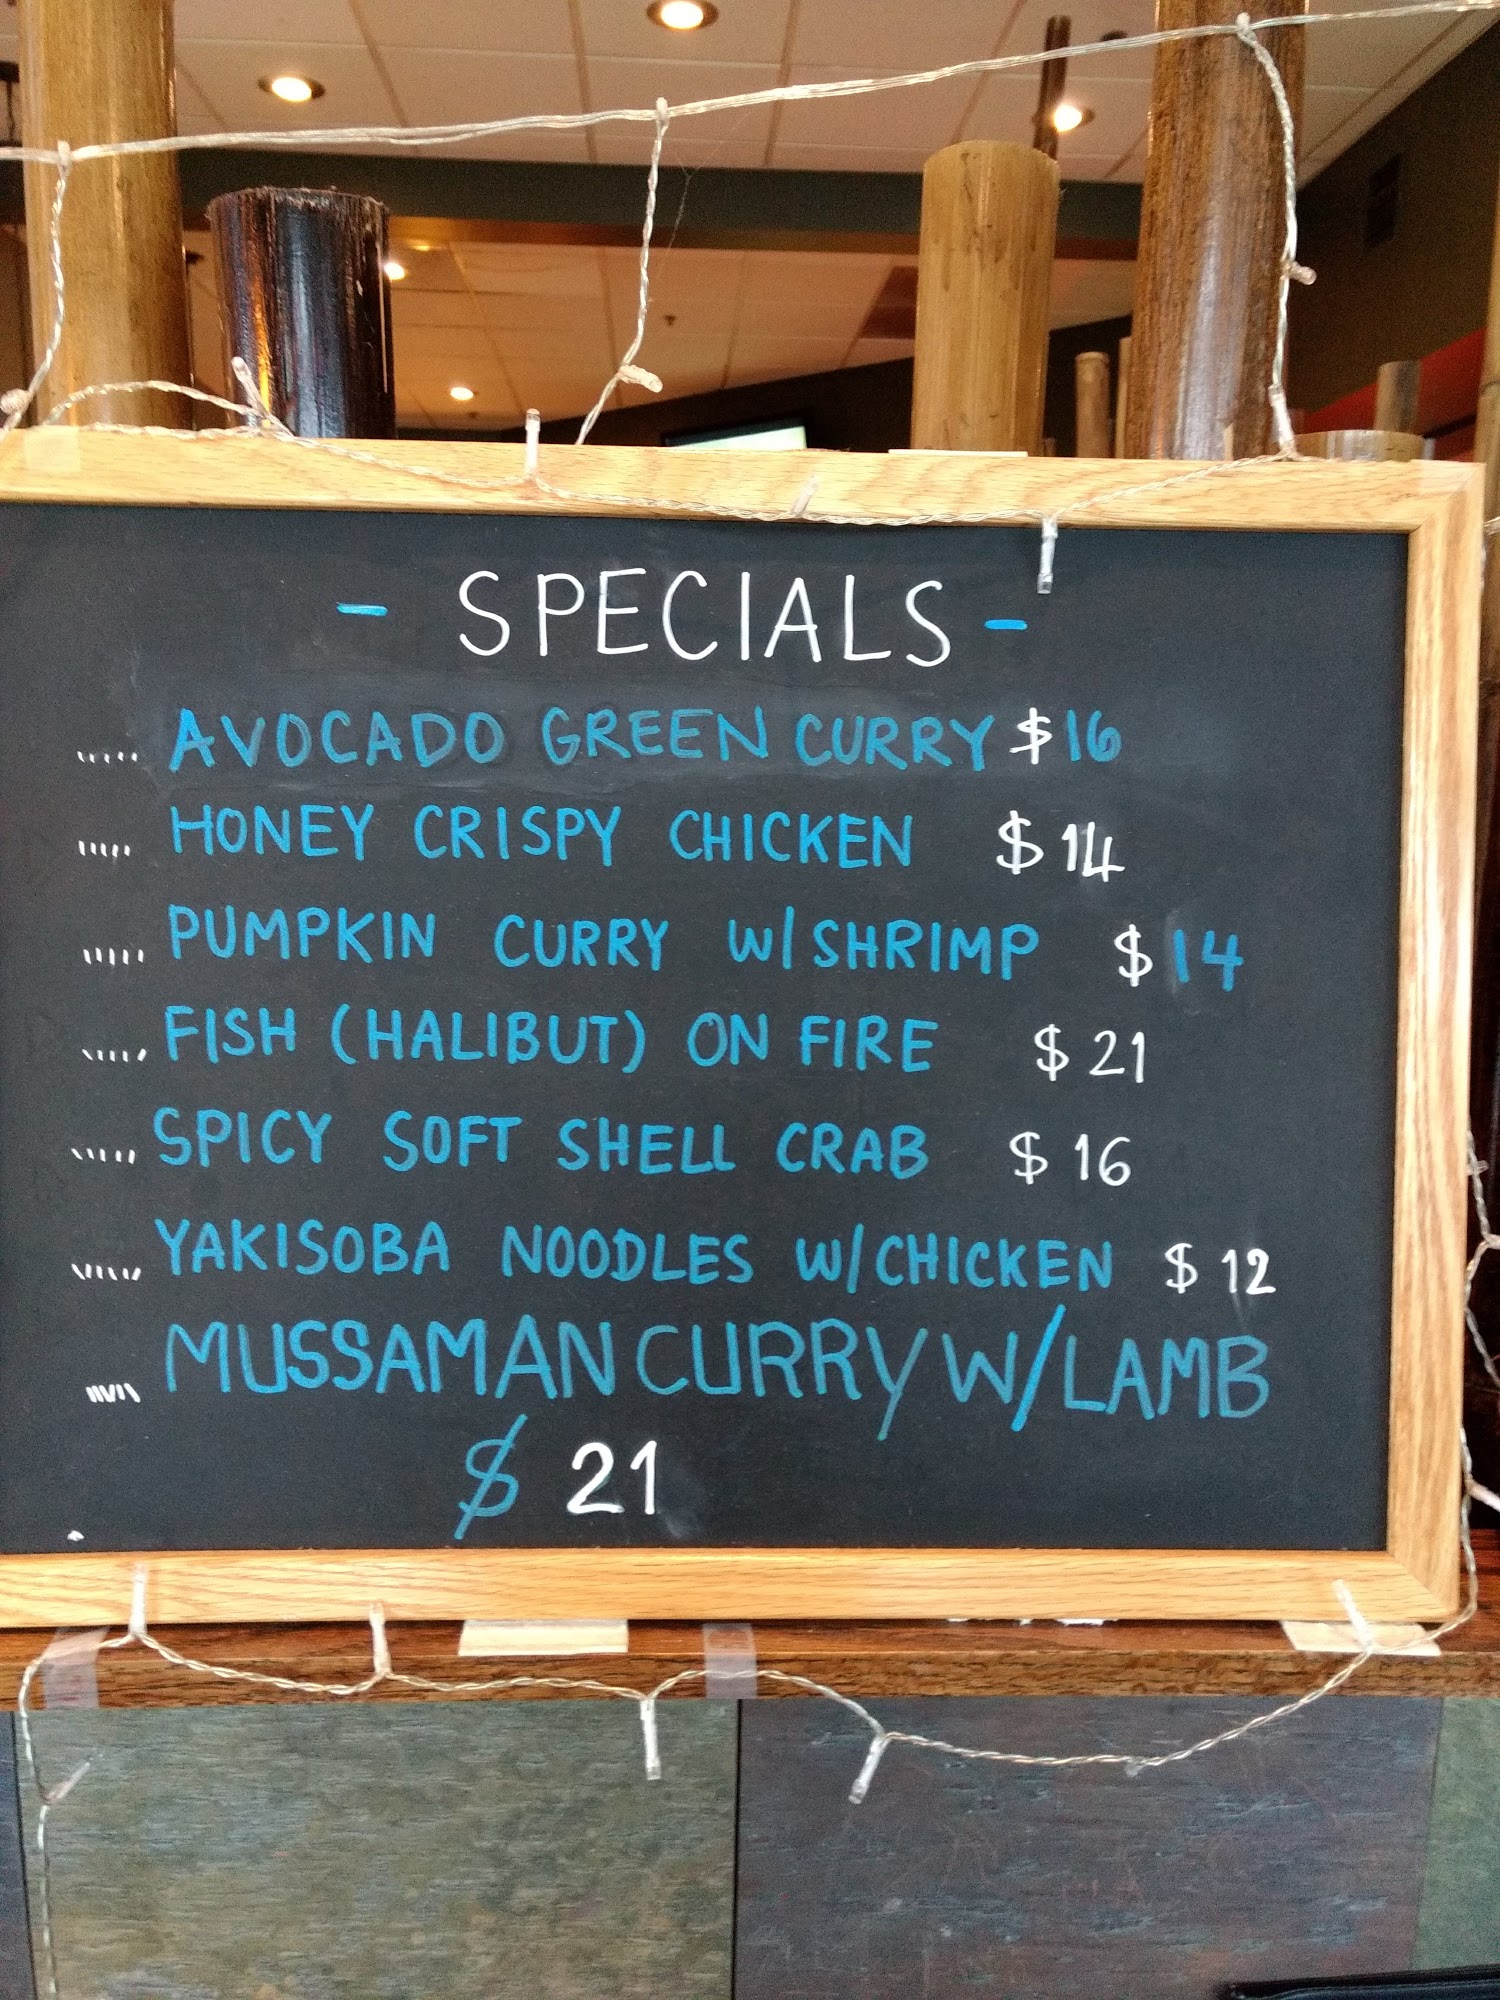 - SPECIALS -
AVOCADO GREEN CURRY $16
HONEY CRISPY CHICKEN $14
PUMPKIN CURRY W/SHRIMP $14
FISH (HALIBUT) ON FIRE $21
SPICY SOFT SHELL CRAB $16
YAKISOBA NOODLES W/CHICKEN $12
MUSSAMAN CURRY W/LAMB
$21